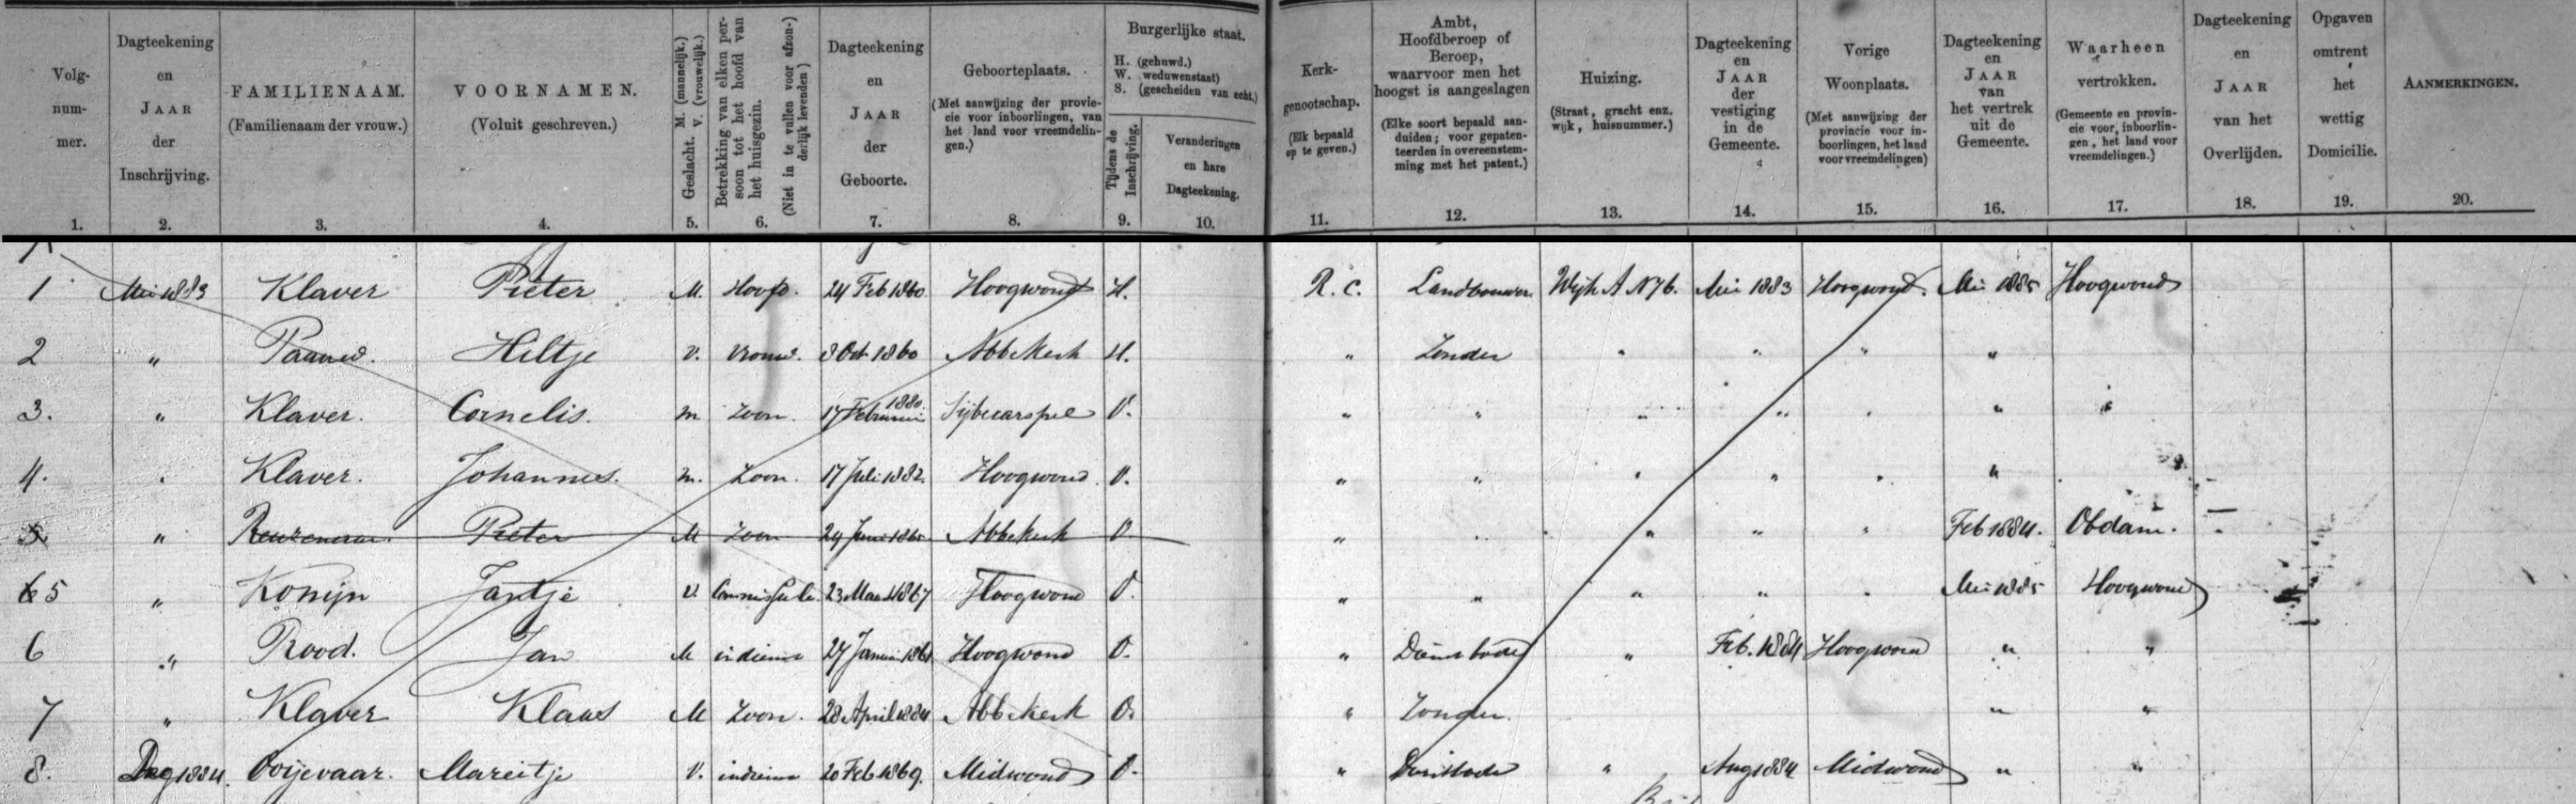 Volg-
num-
mer.
1.
Dagteekening
en
JAAR
der
Inschrijving.
2.
FAMILIENAAM.
(Familienaam der vrouw.)
3.
VOORNAMEN.
(Voluit geschreven.)
4.
Geslacht. M. (mannelijk.)
V. (vrouwelijk.)
5.
Betrekking van elken per-
soon tot het hoofd van
het huisgezin.
(Niet in te vullen voor afzon-
derlijk levenden)
6.
Dagteekening
en
JAAR
der
Geboorte.
7.
Geboorteplaats.
(Met aanwijzing der provin-
cie voor inboorlingen, van
het land voor vreemdelin-
gen.)
8.
Burgerlijke staat.
H. (gehuwd.)
W. weduwenstaat)
S. (gescheiden van echt.)
Tijdens de
Inschrijving.
9.
Veranderingen
en hare
Dagteekening.
10.
Kerk-
genootschap.
(Elk bepaald
op te geven.)
11.
Ambt,
Hoofdberoep of
Beroep,
waarvoor men het
hoogst is aangeslagen
(Elke soort bepaald aan-
duiden; voor gepaten-
teerden in overeenstem-
ming met het patent.)
12.
Huizing.
(Straat, gracht enz.
wijk, huisnummer.)
13.
Dagteekening
en
JAAR
der
vestiging
in de
Gemeente.
14.
Vorige
Woonplaats.
(Met aanwijzing der
provincie voor in-
boorlingen, het land
voor vreemdelingen)
15.
Dagteekening
en
JAAR
van
het vertrek
uit de
Gemeente.
16.
Waarheen
vertrokken.
(Gemeente en provin-
cie voor, inboorlin-
gen, het land voor
vreemdelingen.)
17.
Dagteekening
en
JAAR
van het
Overlijden.
18.
Opgaven
omtrent
het
wettig
Domicilie.
19.
AANMERKINGEN.
20.
1 Mei 1883 Klaver Pieter M. Hoofd. 24 Feb 1860 Hoogwoud H. R. C. Landbouwer Wijk A N 76. Mei 1883 Hoogwoud. Mei 1885 Hoogwoud
2 " Paauw. Hiltje V. Vrouw. 8 Oct 1860 Abbekerk H. " Zonder " " " "
3. " Klaver. Cornelis. m zoon. 17 Februari 1880. Sijbecarspel O. " " " " " " "
4. " Klaver. Johannes. m. Zoon. 17 Juli 1882. Hoogwoud. O. " " " " " "
5 " Pieter M Zoon 24 Juni 1865 Abbekerk O. " " " " " Feb 1884. Obdam.
6 5 " Konijn Jantje V. 23 Maart 1867 Hoogwoud O. " " " " " Mei 1885 Hoogwoud
6 " Rood. Jan M indienst 27 Januari Hoogwoud O. " Dienstbode " Feb. 1884 Hoogwoud " "
7 " Klaver Klaas M Zoon. 28 April 1884 Abbekerk O. " Zonder. " "
8. 1884. Ooijevaar. Mareitje V. indienst 20 Feb 1869. Midwoud O. " Dienstbode " Aug 1884 Midwoud " "